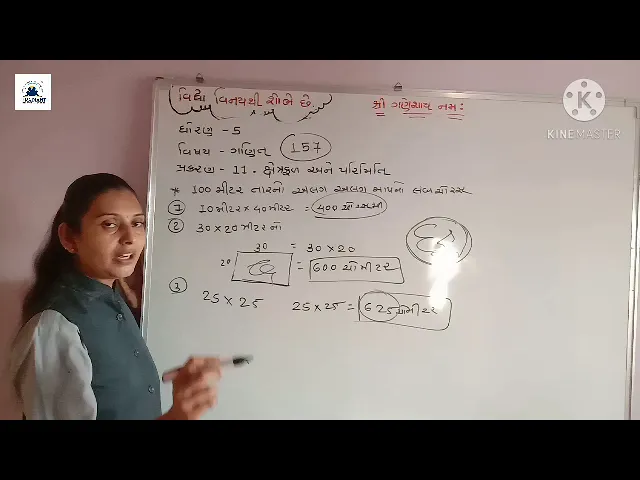 વિદ્યા વિનયથી શોભે છે.
શ્રી ગણેશાય નમઃ
KINEMASTER
ધોરણ - 5
વિષય - ગણિત 157
પ્રકરણ - 11. ક્ષેત્રફળ અને પરિમિતિ
* 100 મીટર તારનો અલગ અલગ માપનો લંબચોરસ
1 10 મીટર × 40 મીટર = 400 ચો.મી
2 30 × 20 મીટરનો
30 = 30 × 20
20 = 600 ચોમીટર
3
25 × 25 25 × 25 = 625 ચોમીટર